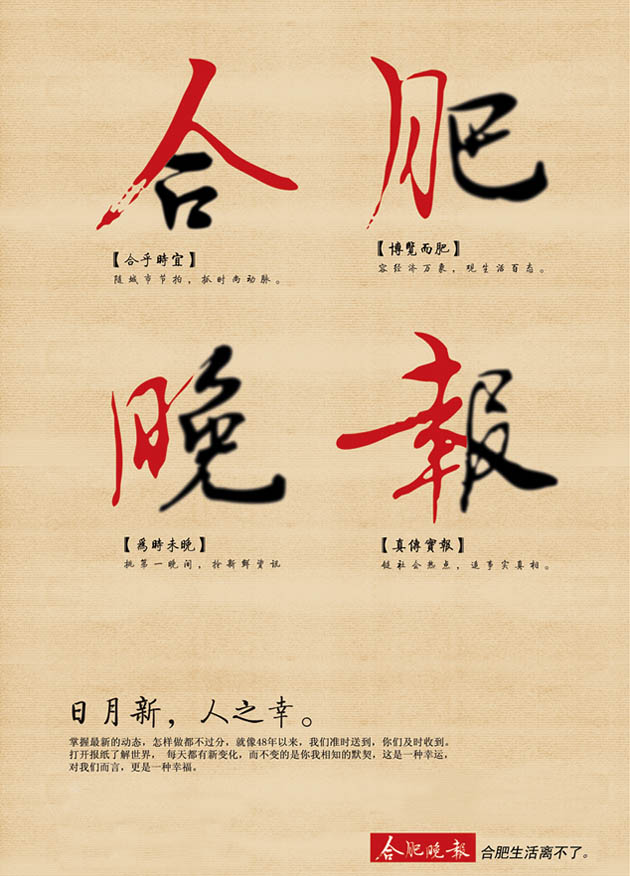 合 肥
【合乎時宜】
随城市节拍，抓时尚动脉。
【博覽而肥】
容经济万象，观生活百态。
晚 報
【為時未晚】
挑第一晚闻，拎新鮮資讯
【真傳實報】
链社会热点，追事实真相。
日月新，人之幸。
掌握最新的动态，怎样做都不过分，就像48年以来，我们准时送到，你们及时收到。
打开报纸了解世界， 每天都有新变化，而不变的是你我相知的默契，这是一种幸运，
对我们而言，更是一种幸福。
合肥晚報 合肥生活离不了。